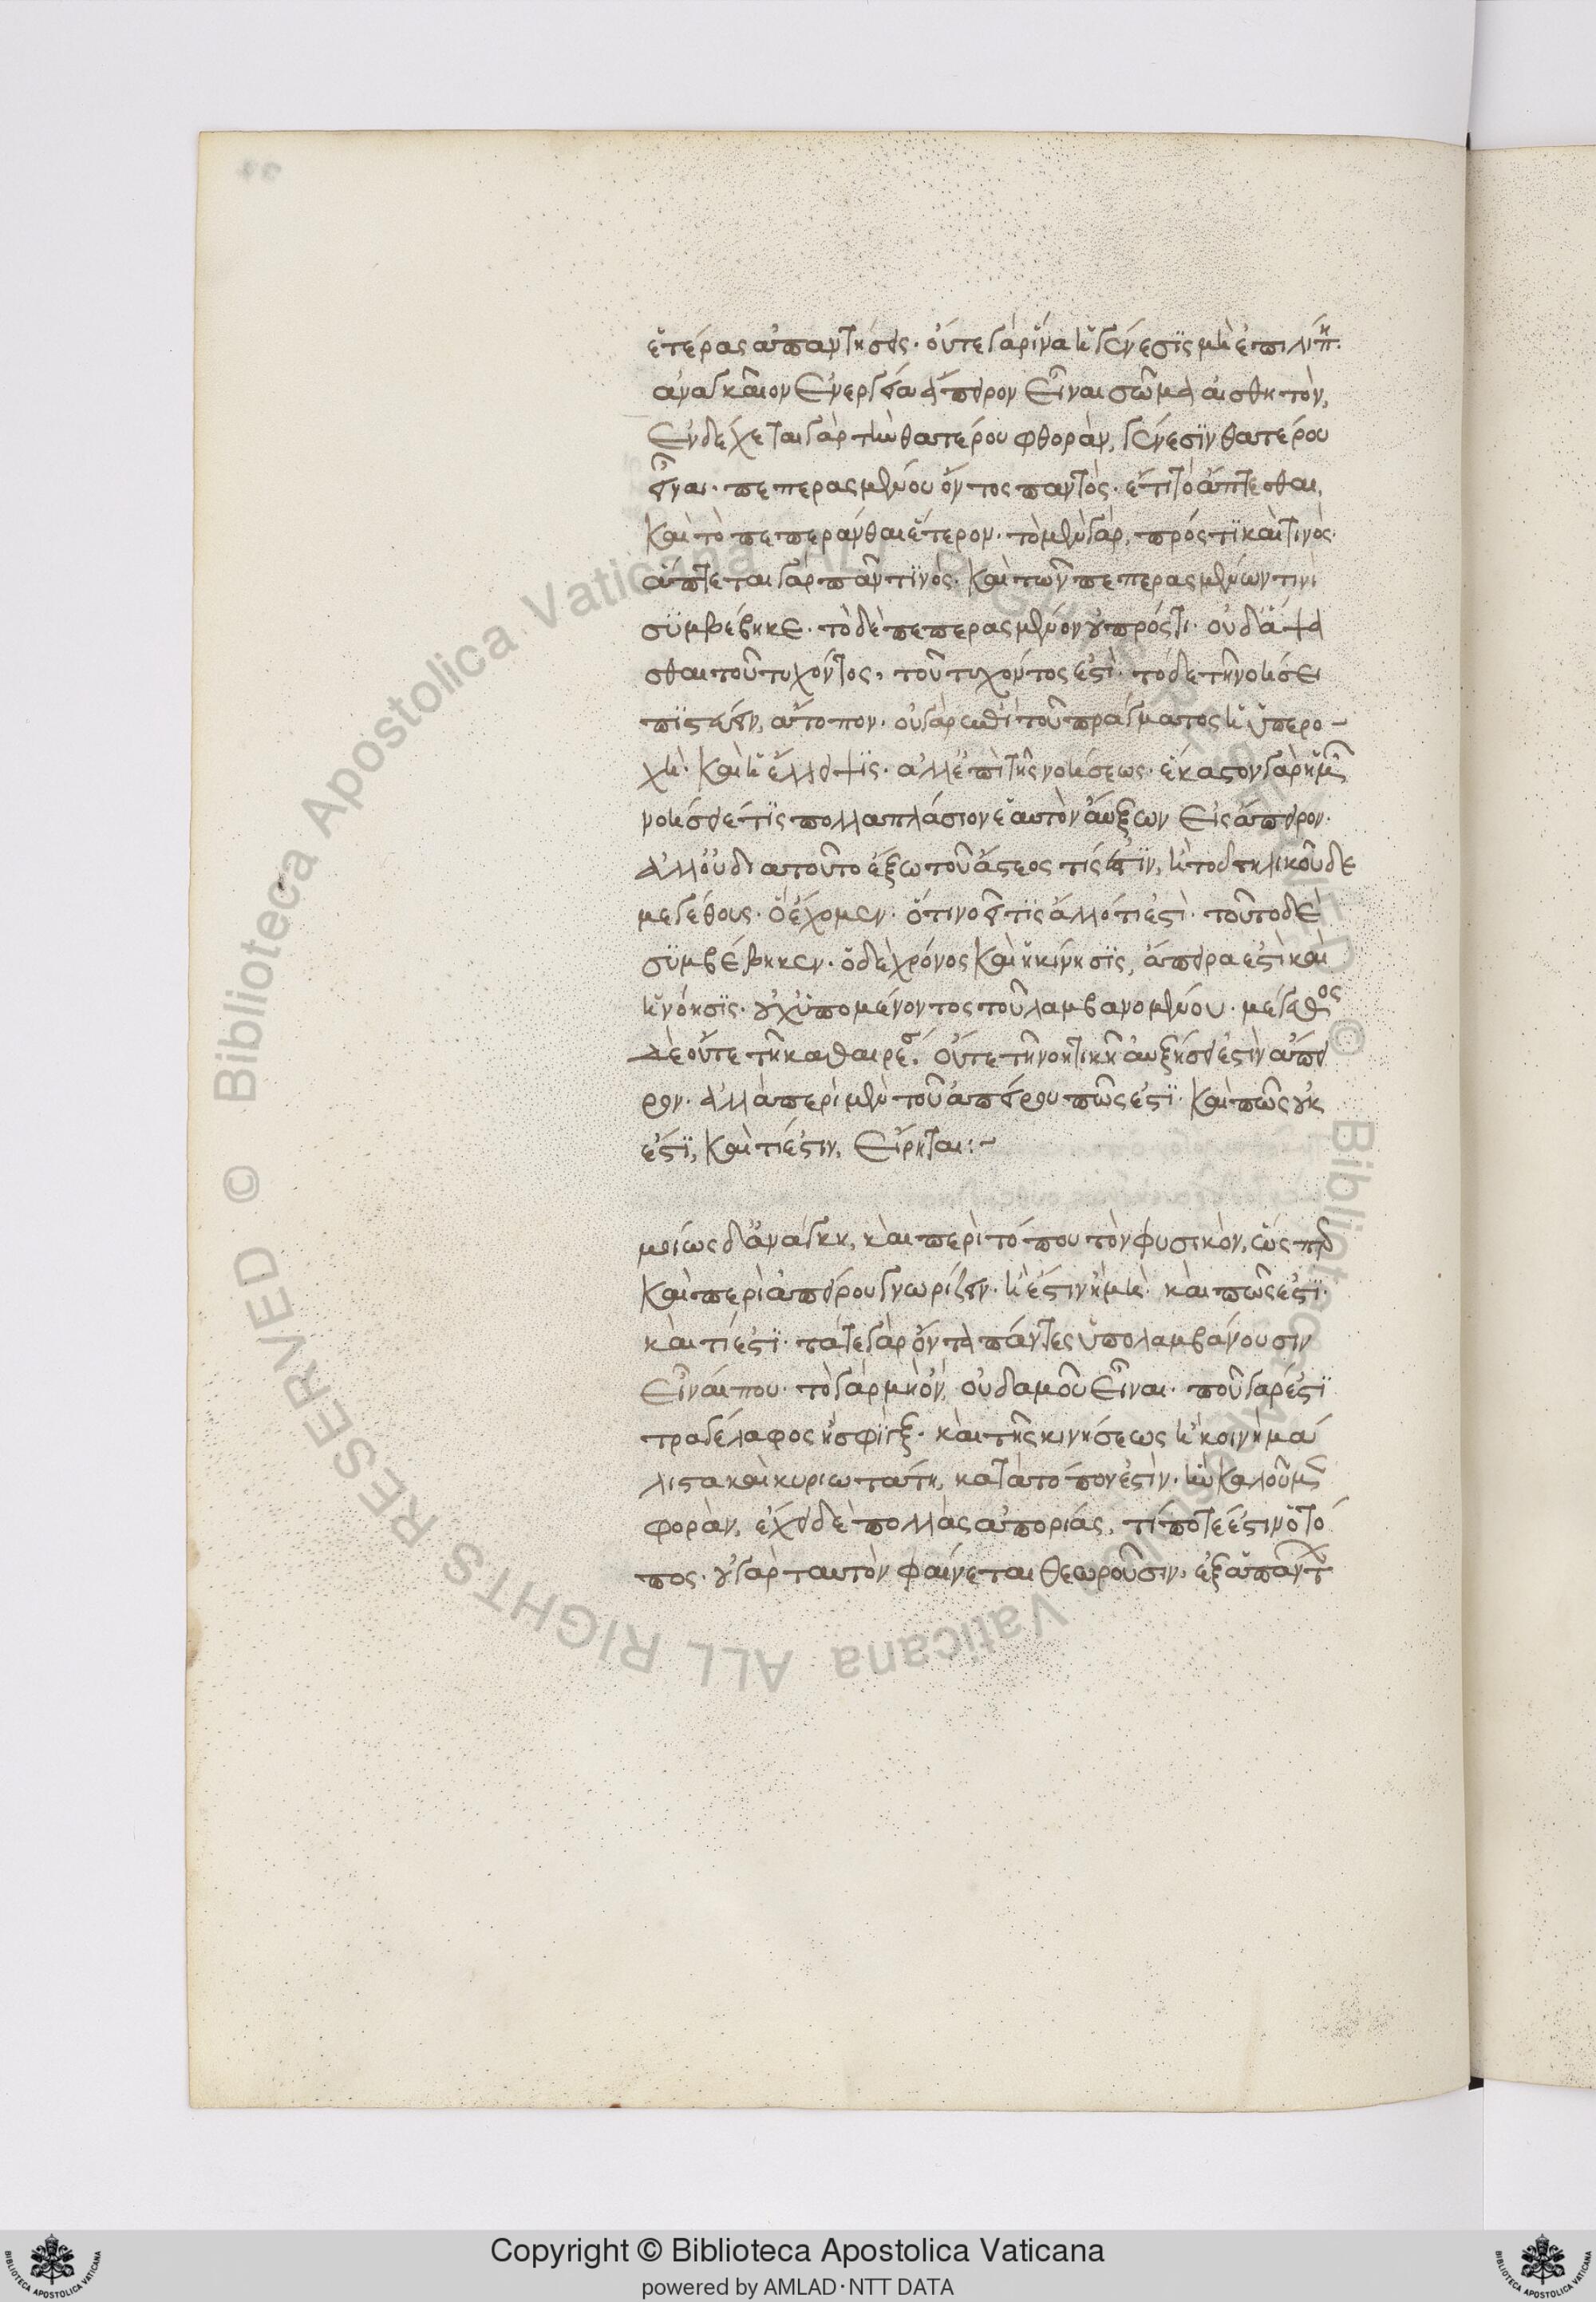 ἑτέρας ἀπαντήσεις· οὔτε γὰρ ἵνα ἡ γένεσϊς μὴ ἐπιλήπη
ἀναγκαῖον ἐνεργείᾳ ἄπειρον εἶναι σῶμα αἰσθητόν,
ἐνδέχεται γὰρ τὴν θατέρου φθορὰν, γένεσϊν θατέρου
εἶναι· πεπερασμένου ὄντος παντός· ἔτι τὸ ἅπτεσθαι,
καὶ τὸ πεπεράνθαι ἕτερον· τὸ μὲν γὰρ, πρός τϊ καὶ τινός·
ἅπτεται γὰρ πᾶν τϊνός· καὶ τῶν πεπερασμένων τινὶ
σϋμβέβηκε· τὸ δὲ πεπερασμένον οὐ πρός τι· οὐδ' ἅψα
σθαι τοῦ τυχόντος, τοῦ τυχόντος ἐστί· τὸ δὲ τῆ νοήσει
πϊστεύειν, ἄτοπον· οὐ γὰρ ἐπὶ τοῦ πράγματος ἡ ὑπερο-
χὴ· καὶ ἡ ἔλλειψϊς· ἀλλ' ἐπὶ τῆς νοήσεως· ἕκαστον γὰρ ἡμῶν
νοήσειέ τϊς πολλαπλάσιον ἑαυτὸν αὔξων εἰς ἄπειρον·
ἀλλ' οὐ διατοῦτο ἔξω τοῦ ἄστεος τίς ἐστϊν, ἢ τοῦ τηλικοῦδε
μεγέθους· ὃ ἔχομεν· ὅτι νοεῖ τϊς ἀλλ' ὅτι ἐστί· τοῦτο δὲ
σϋμβέβηκεν· ὁ δὲ χρόνος καὶ ἡ κίνησϊς, ἄπειρα ἐστὶ καὶ
ἡ νόησϊς· οὐχ ὑπομένοντος τοῦ λαμβανομένου· μέγεθος
δὲ οὔτε τῆ καθαιρέσει οὔτε τῆ νοητικῆ αὐξήσει ἐστὶν ἄπει
ρον· ἀλλὰ περὶ μὲν τοῦ ἀπείρου πῶς ἐστϊ· καὶ πῶς οὐκ
ἐστϊ, καὶ τί ἐστιν, εἴρηται:~
μοίως δ' ἀνάγκη, καὶ περὶ τόπου τὸν φυσικὸν, ὥσπερ
καὶ περὶ ἀπείρου γνωρίζειν· ἢ ἔστιν ἢ μὴ· καὶ πῶς ἐστϊ·
καὶ τί ἐστϊ· τά τε γὰρ ὄντα πάντες ὑπολαμβάνουσιν
εἶναί που· τὸ γὰρ μὴ ὂν, οὐδαμοῦ εἶναι· ποῦ γάρ ἐστϊ
τραγέλαφος ἢ σφὶγξ· καὶ τῆς κινήσεως ἡ κοινὴ μά
λιστα καὶ κυριωτάτη, κατὰ τόπον ἐστὶν· ἣν καλοῦμεν
φορὰν, ἔχει δὲ πολλὰς ἀπορίας, τί ποτέ ἐστιν ὁ τό
πος· οὐ γὰρ ταυτὸν φαίνεται θεωροῦσιν, ἐξ ἁπάντων